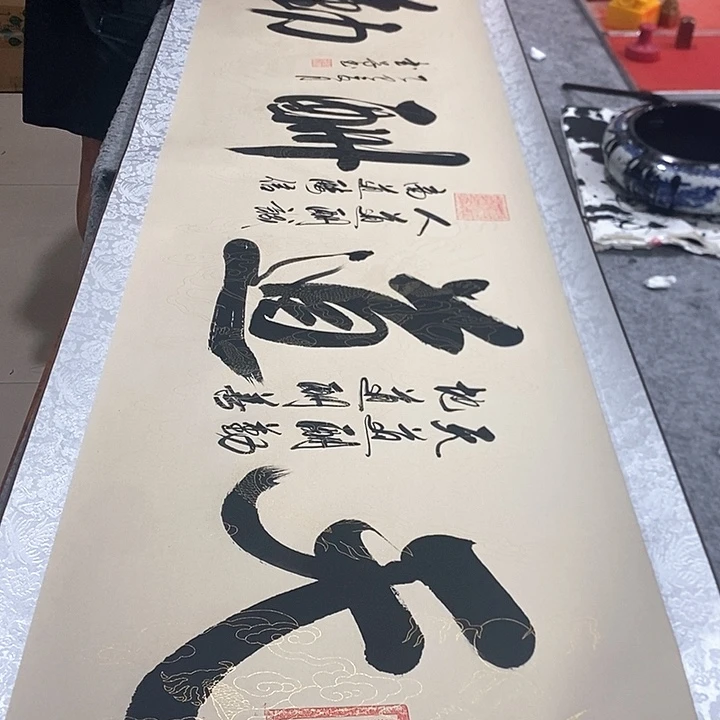 天
天道酬勤
地道酬善
道
人道酬誠
商道酬信
酬
勤